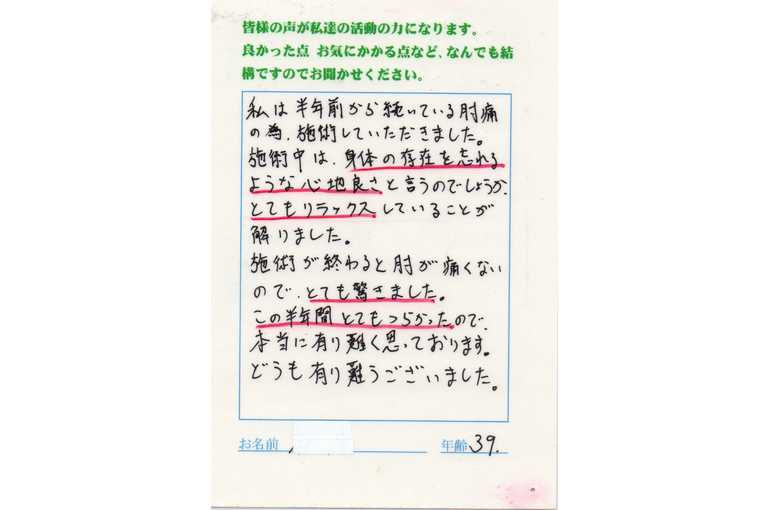 皆様の声が私達の活動の力になります。
良かった点 お気にかかる点など、なんでも結
構ですのでお聞かせください。
私は半年前から続いている肘痛
の為、施術していただきました。
施術中は、身体の存在を忘れる
ような心地良さと言うのでしょうか、
とてもリラックスしていることが
解りました。
施術が終わると肘が痛くない
ので、とても驚きました。
この半年間とてもつらかったので、
本当に有り難く思っております。
どうも有り難うございました。
お名前
年齢 39.